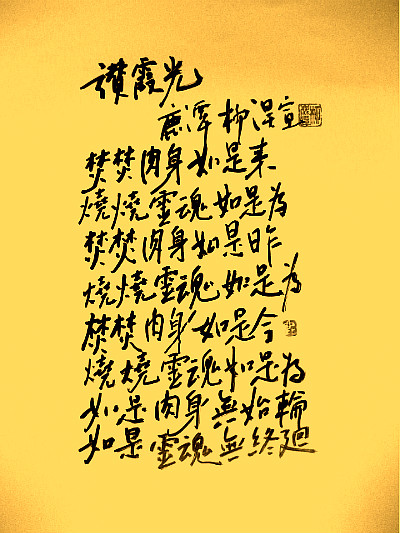 讚霞光
鹿潭 柳浞宣
焚焚肉身如是来
燒燒靈魂如是為
焚焚肉身如是昨
燒燒靈魂如是為
焚焚肉身如是今
燒燒靈魂如是為
如是肉身無始輪
如是靈魂無終廻